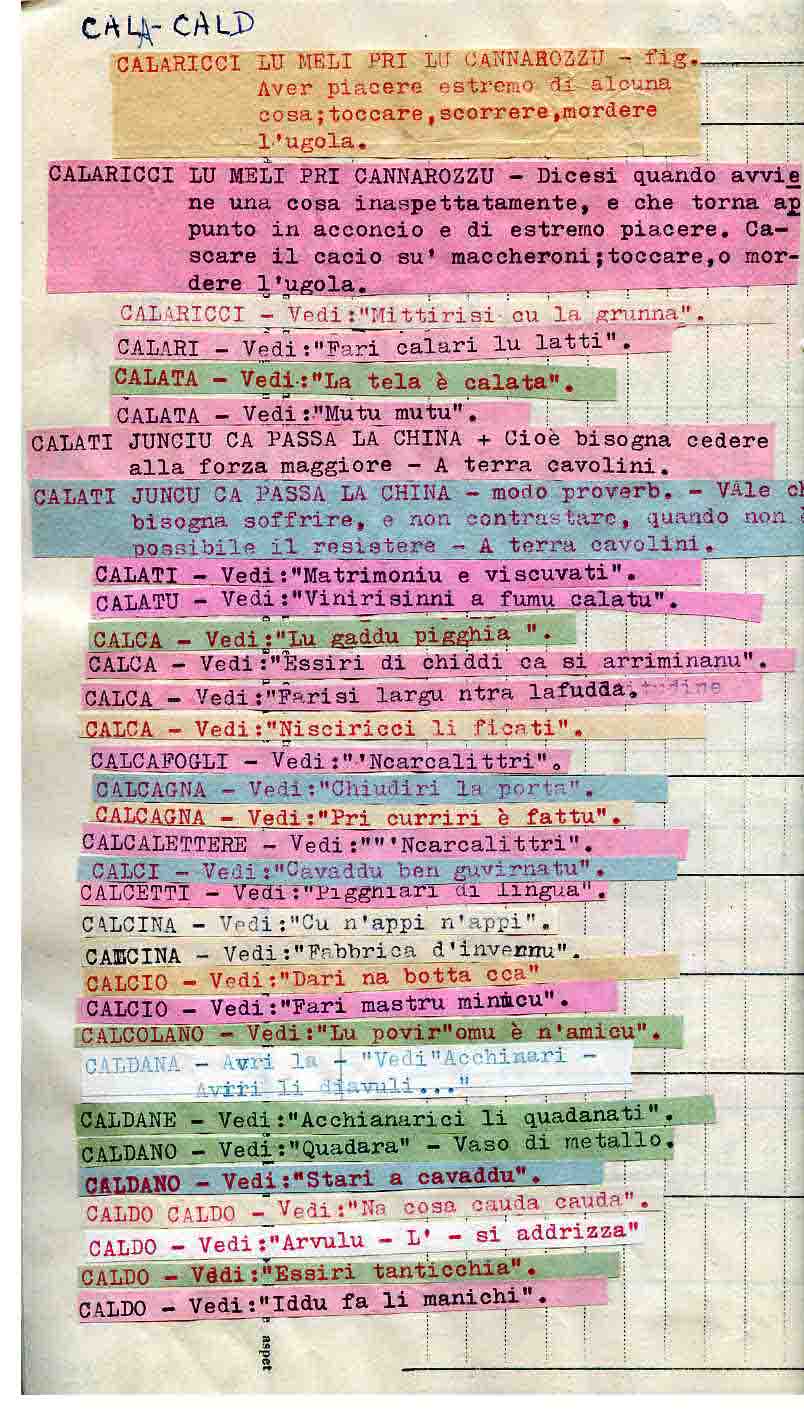 CALA-CALD
CALARICCI LU MELI PRI LU CANNAROZZU - fig.
Aver piacere estremo di alcuna
cosa;toccare,scorrere,mordere
l'ugola.
CALARICCI LU MELI PRI CANNAROZZU - Dicesi quando avvie
ne una cosa inaspettatamente, e che torna ap
punto in acconcio e di estremo piacere. Ca-
scare il cacio su' maccheroni;toccare,o mor-
dere l'ugola.
CALARICCI - Vedi:"Mittirisi cu la grunna".
CALARI - Vedi:"Fari calari lu latti".
CALATA - Vedi:"La tela è calata".
CALATA - Vedi:"Mutu mutu".
CALATI JUNCIU CA PASSA LA CHINA + Cioè bisogna cedere
alla forza maggiore - A terra cavolini.
CALATI JUNCU CA PASSA LA CHINA - modo proverb. - VAle ch
bisogna soffrire, e non contrastare, quando non è
possibile il resistere - A terra cavolini.
CALATI - Vedi:"Matrimoniu e viscuvati".
CALATU - Vedi:"Vinirisinni a fumu calatu".
CALCA - Vedi:"Lu gaddu pigghia ".
CALCA - Vedi:"Essiri di chiddi ca si arriminanu".
CALCA - Vedi:"Farisi largu ntra lafudda.
CALCA - Vedi:"Nisciricci li ficati".
CALCAFOGLI - Vedi:"'Ncarcalittri".
CALCAGNA - Vedi:"Chiudiri la porta".
CALCAGNA - Vedi:"Pri curriri è fattu".
CALCALETTERE - Vedi:""'Ncarcalittri".
CALCI - Vedi:"Cavaddu ben guvirnatu".
CALCETTI - Vedi:"Pigghiari di lingua".
CALCINA - Vedi:"Cu n'appi n'appi".
CALCINA - Vedi:"Fabbrica d'invernu".
CALCIO - Vedi:"Dari na botta cca"
CALCIO - Vedi:"Fari mastru minicu".
CALCOLANO - Vedi:"Lu povir"omu è n'amicu".
CALDANA - Avri la + "Vedi"Acchinari -
Aviri li diavuli..."
CALDANE - Vedi:"Acchianarici li quadanati".
CALDANO - Vedi:"Quadara" - Vaso di metallo.
CALDANO - Vedi:"Stari a cavaddu".
CALDO CALDO - Vedi:"Na cosa cauda cauda".
CALDO - Vedi:"Arvulu - L' - si addrizza"
CALDO - Vedi:"Essiri tanticchia".
CALDO - Vedi:"Iddu fa li manichi".
aspet